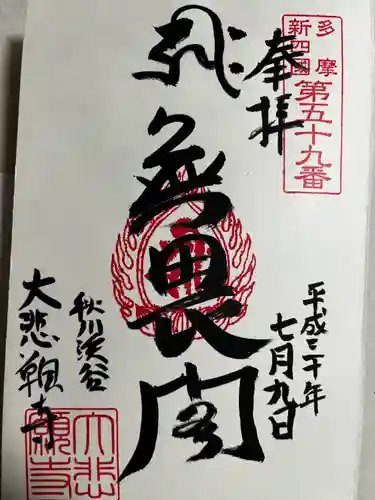 多摩
新四國
第五十九番
奉拝
無畏閣
平成二十年
七月九日
秋川渓谷
大悲願寺
大悲願寺